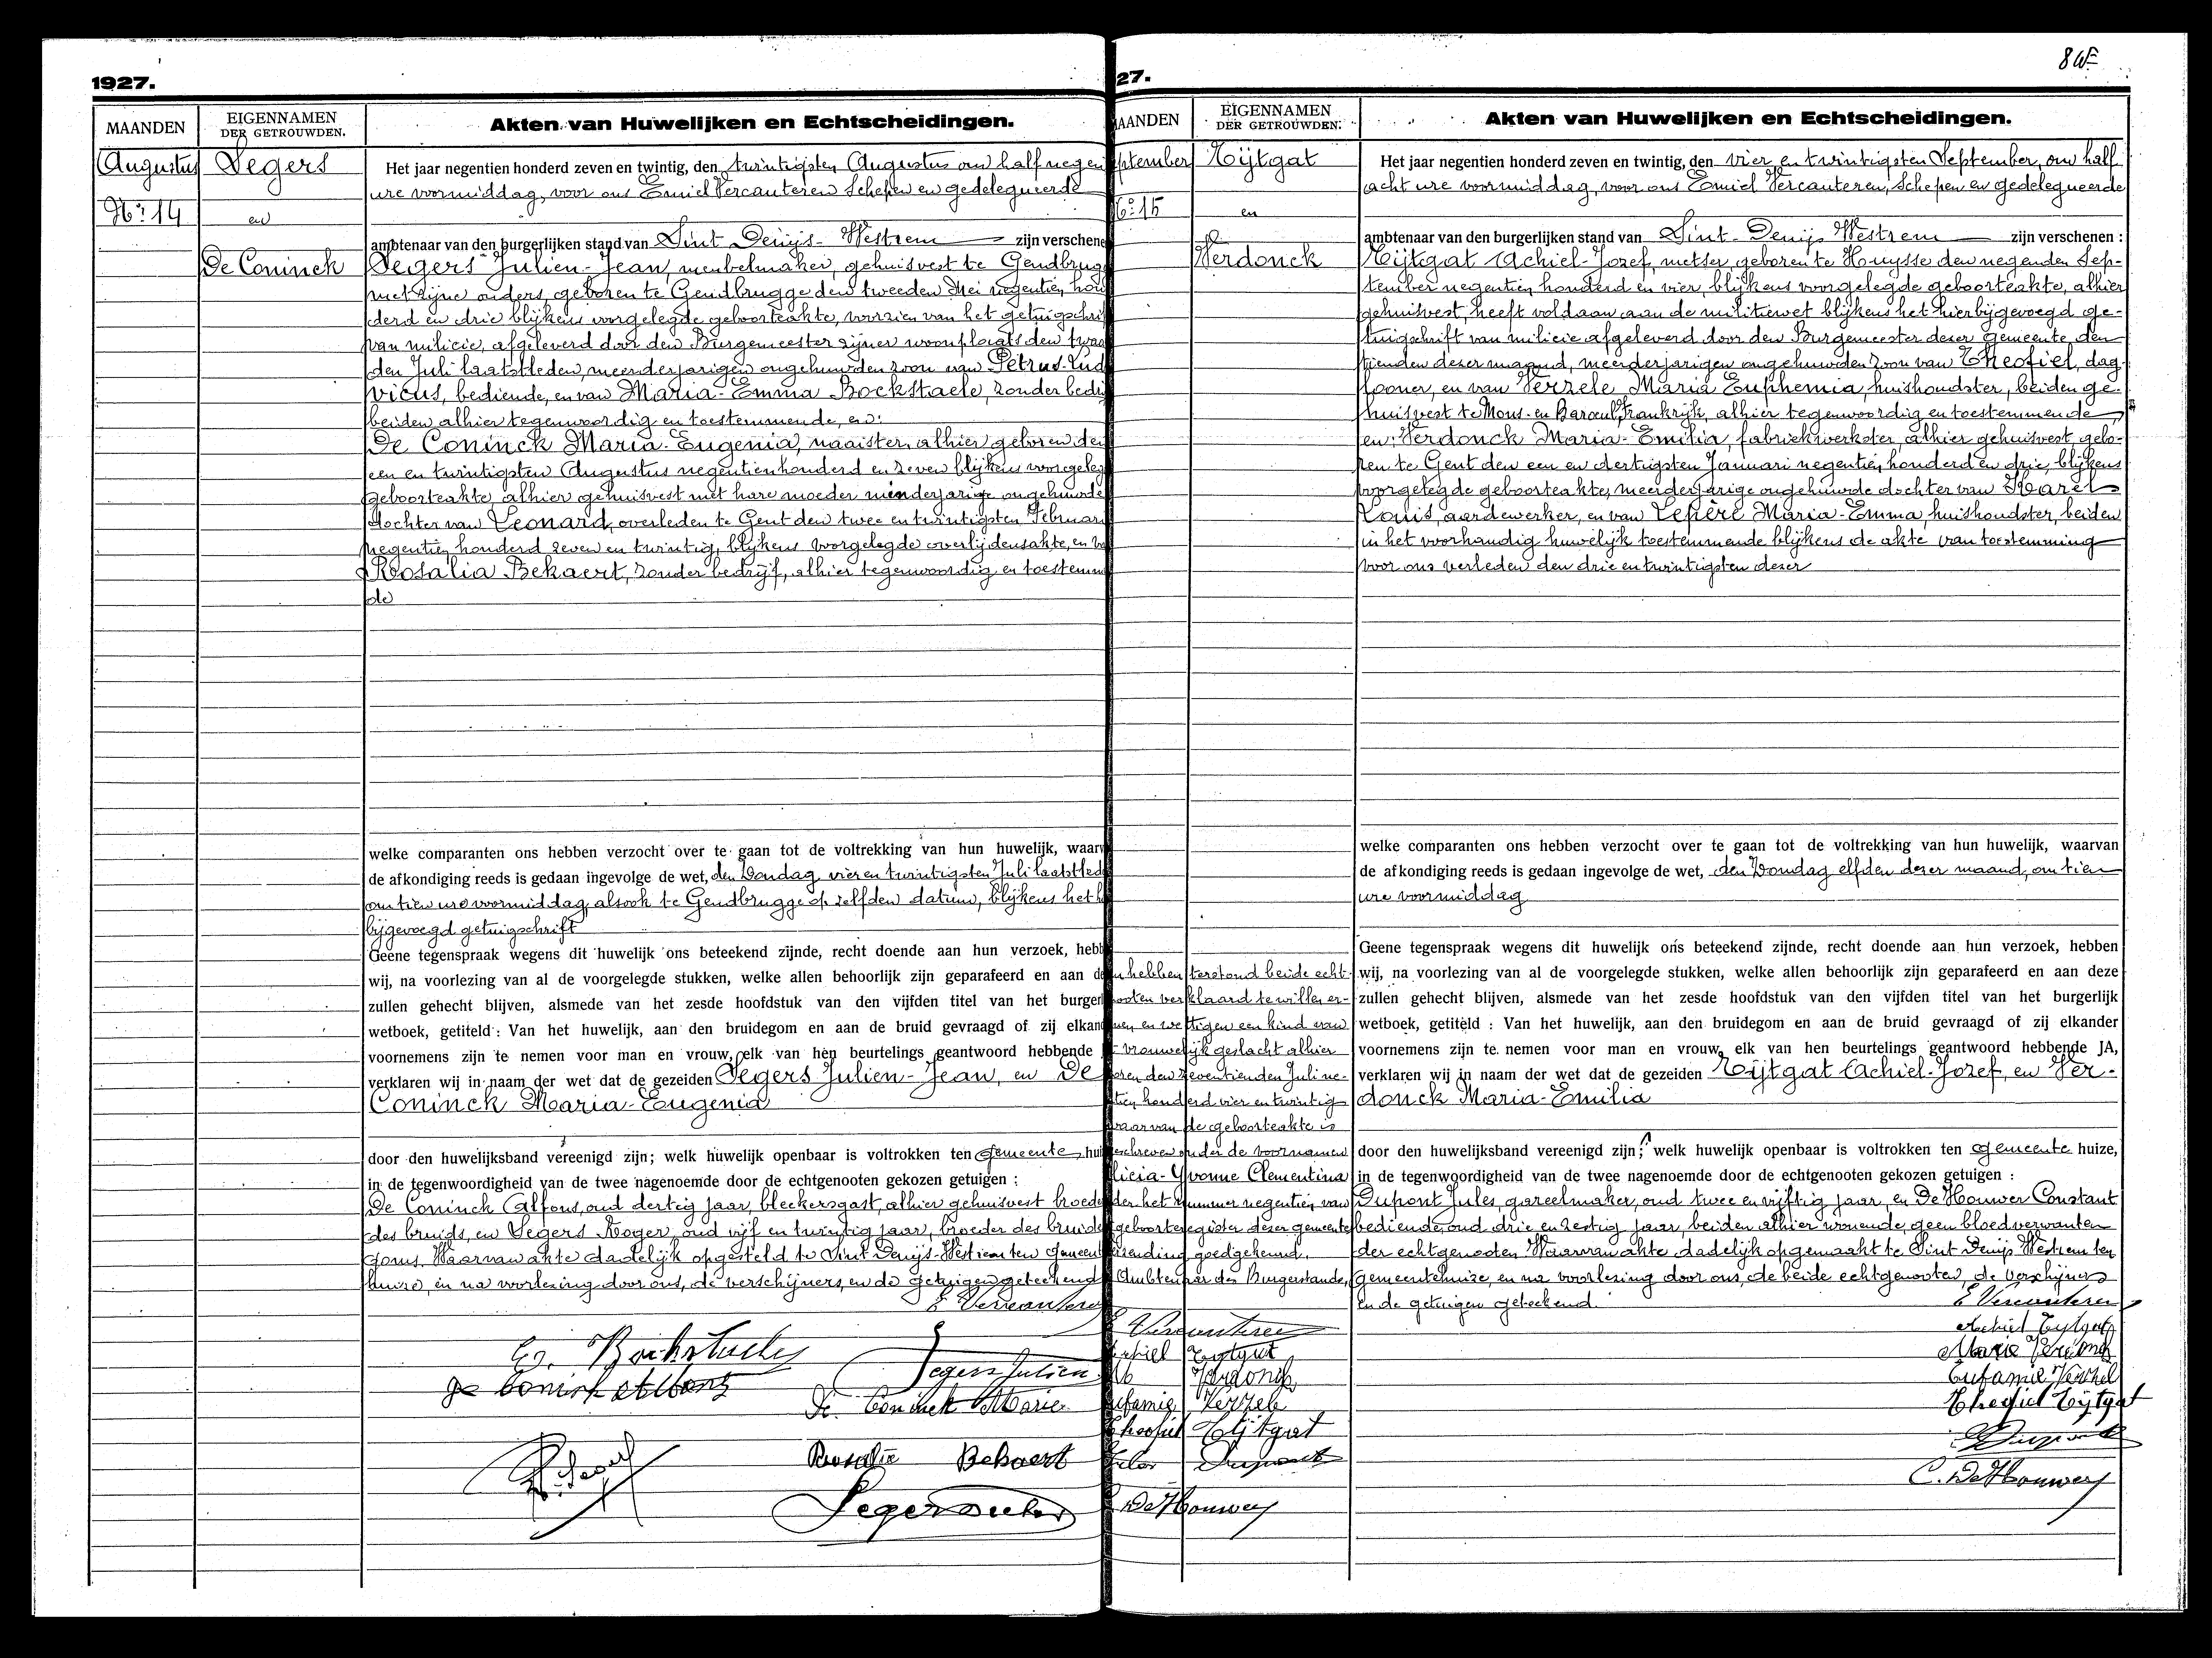 1927.
MAANDEN
EIGENNAMEN
DER GETROUWDEN.
Akten van Huwelijken en Echtscheidingen.
Augustus
Nº 14
Segers
en
De Coninck
Het jaar negentien honderd zeven en twintig, den twintigsten Augustus om half negen
ure voormiddag, voor ons Emiel Vercauteren Schepen en gedelegueerde
ambtenaar van den burgerlijken stand van Sint Denijs-Westrem zijn verschene
Segers Julien-Jean, meubelmaker, gehuisvest te Gendbrugge
met zijne ouders, geboren te Gendbrugge den tweeden Mei negentien hon
derd en drie blijkens voorgelegde geboorteakte, voorzien van het getuigschrif
van milicie, afgeleverd door den Burgemeester zijner woonplaats den twaa
den Juli laatstleden, meerderjarigen ongehuwden zoon van Petrus-Lud
vicus, bediende, en van Maria-Emma Bockstaele, zonder bedrij
beiden alhier tegenwoordig en toestemmende, en:
De Coninck Maria-Eugenia, naaister, alhier geboren den
een en twintigsten Augustus negentienhonderd en zeven blijkens voorgeleg
geboorteakte, alhier gehuisvest met hare moeder minderjarige ongehuwde
dochter van Leonard, overleden te Gent den twee en twintigsten Februari
negentien honderd zeven en twintig, blijkens voorgelegde overlijdensakte, en va
Rosalia Bekaert, zonder bedrijf, alhier tegenwoordig en toestemm
de
welke comparanten ons hebben verzocht over te gaan tot de voltrekking van hun huwelijk, waarv
de afkondiging reeds is gedaan ingevolge de wet, den Zondag vier en twintigsten Juli laatstled
om tien ure voormiddag, alsook te Gendbrugge op zelfden datum, blijkens het h
bijgevoegd getuigschrift
Geene tegenspraak wegens dit huwelijk ons beteekend zijnde, recht doende aan hun verzoek, hebb
wij, na voorlezing van al de voorgelegde stukken, welke allen behoorlijk zijn geparafeerd en aan de
zullen gehecht blijven, alsmede van het zesde hoofdstuk van den vijfden titel van het burgerl
wetboek, getiteld : Van het huwelijk, aan den bruidegom en aan de bruid gevraagd of zij elkand
voornemens zijn te nemen voor man en vrouw, elk van hen beurtelings geantwoord hebbende
verklaren wij in naam der wet dat de gezeiden Segers Julien-Jean, en De
Coninck Maria-Eugenia
door den huwelijksband vereenigd zijn; welk huwelijk openbaar is voltrokken ten gemeente hui
in de tegenwoordigheid van de twee nagenoemde door de echtgenooten gekozen getuigen :
De Coninck Alfons, oud dertig jaar, bleekersgast, alhier gehuisvest broeder
des bruids, en Segers Roger, oud vijf en twintig jaar, broeder des bruide
goms. Waarvan akte dadelijk opgesteld te Sint Denijs-Westrem ten gemeent
huize, en na voorlezing door ons, de verschijners, en de getuigen geteekend
E Vercauteren
Segers Julien
De Coninck Marie
Rosalie Bekaert
27.
MAANDEN
EIGENNAMEN
DER GETROUWDEN.
Akten van Huwelijken en Echtscheidingen.
ptember
Nº 15
Tijtgat
en
Verdonck
Het jaar negentien honderd zeven en twintig, den vier en twintigsten September, om half
acht ure voormiddag, voor ons Emiel Vercauteren, Schepen en gedelegueerde
ambtenaar van den burgerlijken stand van Sint-Denijs Westrem zijn verschenen :
Tijtgat Achiel-Jozef, metser, geboren te Huysse den negenden Sep-
tember negentien honderd en vier, blijkens voorgelegde geboorteakte, alhier
gehuisvest, heeft voldaan aan de militiewet blijkens het hierbijgevoegd ge-
tuigschrift van milicie afgeleverd door den Burgemeester dezer gemeente, den
tienden dezer maand, meerderjarigen ongehuwden zoon van Theofiel, dag-
looner, en van Verzele Maria Euphemia, huishoudster, beiden ge-
huisvest te Mons-en Baroeul, Frankrijk, alhier tegenwoordig en toestemmende,
en: Verdonck Maria-Emilia, fabriekwerkster, alhier gehuisvest, gebo-
ren te Gent den een en dertigsten Januari negentien honderd en drie, blijkens
voorgelegde geboorteakte, meerderjarige ongehuwde dochter van Karel-
Louis, aardewerker, en van Lepère Maria-Emma, huishoudster, beiden
in het voorhandig huwelijk toestemmende blijkens de akte van toestemming
voor ons verleden den drie en twintigsten dezer
welke comparanten ons hebben verzocht over te gaan tot de voltrekking van hun huwelijk, waarvan
de afkondiging reeds is gedaan ingevolge de wet, den Zondag elfden dezer maand, om tien
ure voormiddag
Geene tegenspraak wegens dit huwelijk ons beteekend zijnde, recht doende aan hun verzoek, hebben
wij, na voorlezing van al de voorgelegde stukken, welke allen behoorlijk zijn geparafeerd en aan deze
zullen gehecht blijven, alsmede van het zesde hoofdstuk van den vijfden titel van het burgerlijk
wetboek, getiteld : Van het huwelijk, aan den bruidegom en aan de bruid gevraagd of zij elkander
voornemens zijn te nemen voor man en vrouw, elk van hen beurtelings geantwoord hebbende JA,
verklaren wij in naam der wet dat de gezeiden Tijtgat Achiel-Jozef, en Ver-
donck Maria-Emilia
door den huwelijksband vereenigd zijn; welk huwelijk openbaar is voltrokken ten gemeente huize,
in de tegenwoordigheid van de twee nagenoemde door de echtgenooten gekozen getuigen :
Dupont Jules, gareelmaker, oud twee en vijftig jaar, en De Houwer Constant
bediende, oud drie en zestig jaar, beiden alhier wonende, geen bloedverwanten
der echtgenooten Waarvan akte dadelijk opgemaakt te Sint Denijs Westrem ten
gemeentehuize, en na voorlezing door ons, de beide echtgenooten, de verschijners
en de getuigen geteekend.
E Vercauteren
Achiel Tytgat
Marie Verdonck
Theofiel Tijtgat
Dupont
C. De Houwer
n hebben terstond beide echt-
nooten verklaard te willen er-
nen en wettigen een kind van
vrouwelijk geslacht alhier
oren den zeventienden Juli ne-
tien honderd vier en twintig
waarvan de geboorteakte is
eschreven onder de voornamen
licia-Yvonne Clementina
der het nummer negentien van
geboorteregister dezer gemeente
zending goedgekeurd.
Ambtenaar des Burgerstands,
E Vercauteren
Achiel Tytgat
M Verdonck
Eufamie Verzele
Theofiel Tijtgat
Dupont
De Houwer